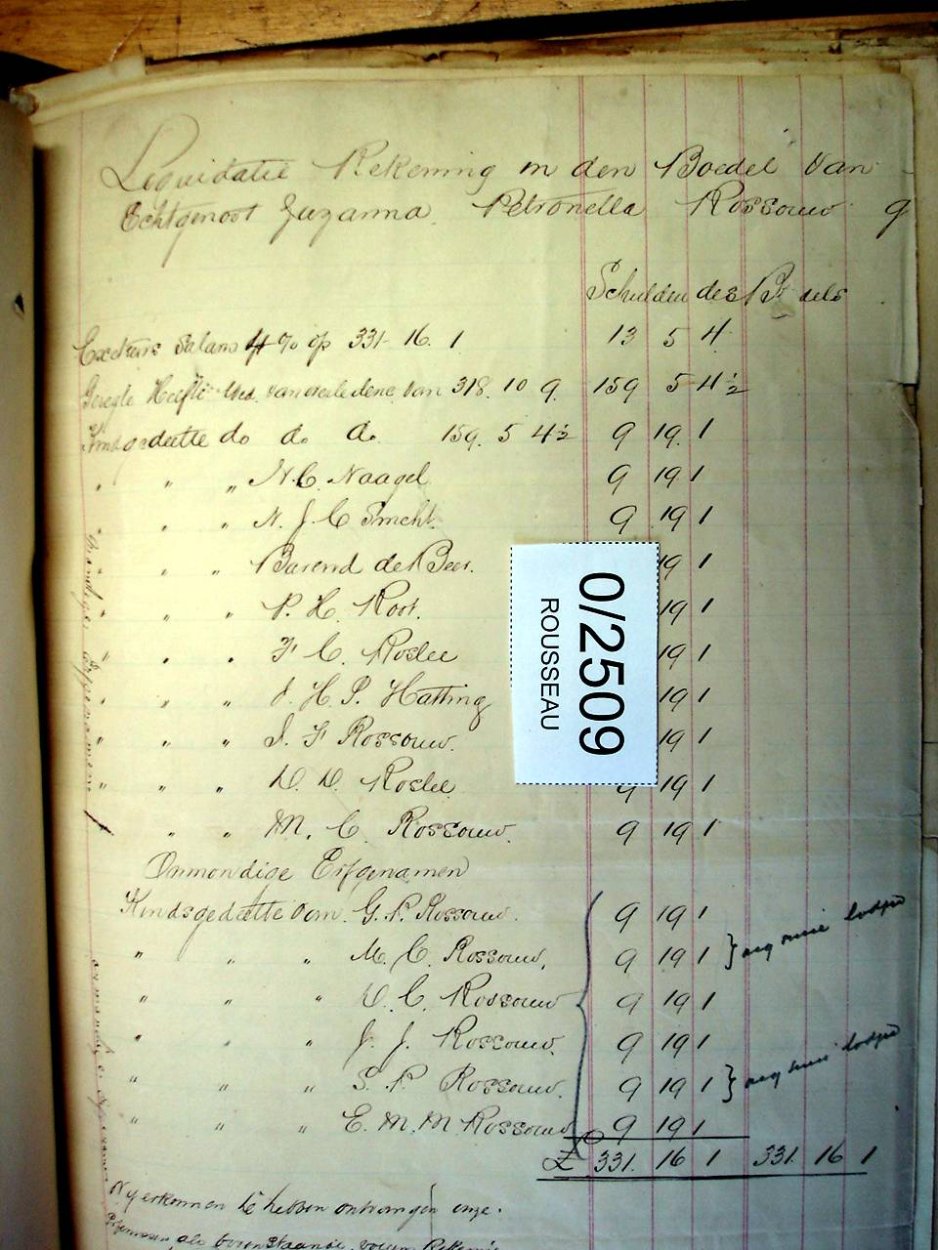 Liquidatie Rekening in den Boedel van
Echtgenoot Zuzanna Petronella Rossouw g
Schulden des B dels
Salaris 4 % op 331 16. 1 13 5 4
Helfte van overledene van 318. 10 9. 159 5 4½
Kindsgedeelte do do do 159. 5 4½ 9 19. 1
" " " N. C. Naagel 9 19 1
" " " N. J. C Smcht 9 19 1
" " " Barend de Beer. 19 1
" " " P. H. Koot. 19 1
" " " F C. Roslee 19 1
" " " J. H. P. Hatting 19 1
" " " S. F Rossouw. 19 1
" " " D. D. Roslee 9 19 1
" " M. C Rossouw. 9 19 1
Onmondige Erfgenamen
Kindsgedeelte van G. P. Rossouw. 9 19 1
" " " M. C. Rossouw, 9 19 1 }
" " " D. C. Rossouw 9 19 1
" " " J. J. Rossouw. 9 19 1
" " " S. P Rossouw. 9 19 1 }
" " " E. M. M Rossouw 9 19 1
£ 331. 16 1 331. 16 1
Wy erkennen te hebben ontvangen onze
als bovenstaande, volgens Rekening
0/2509
ROUSSEAU